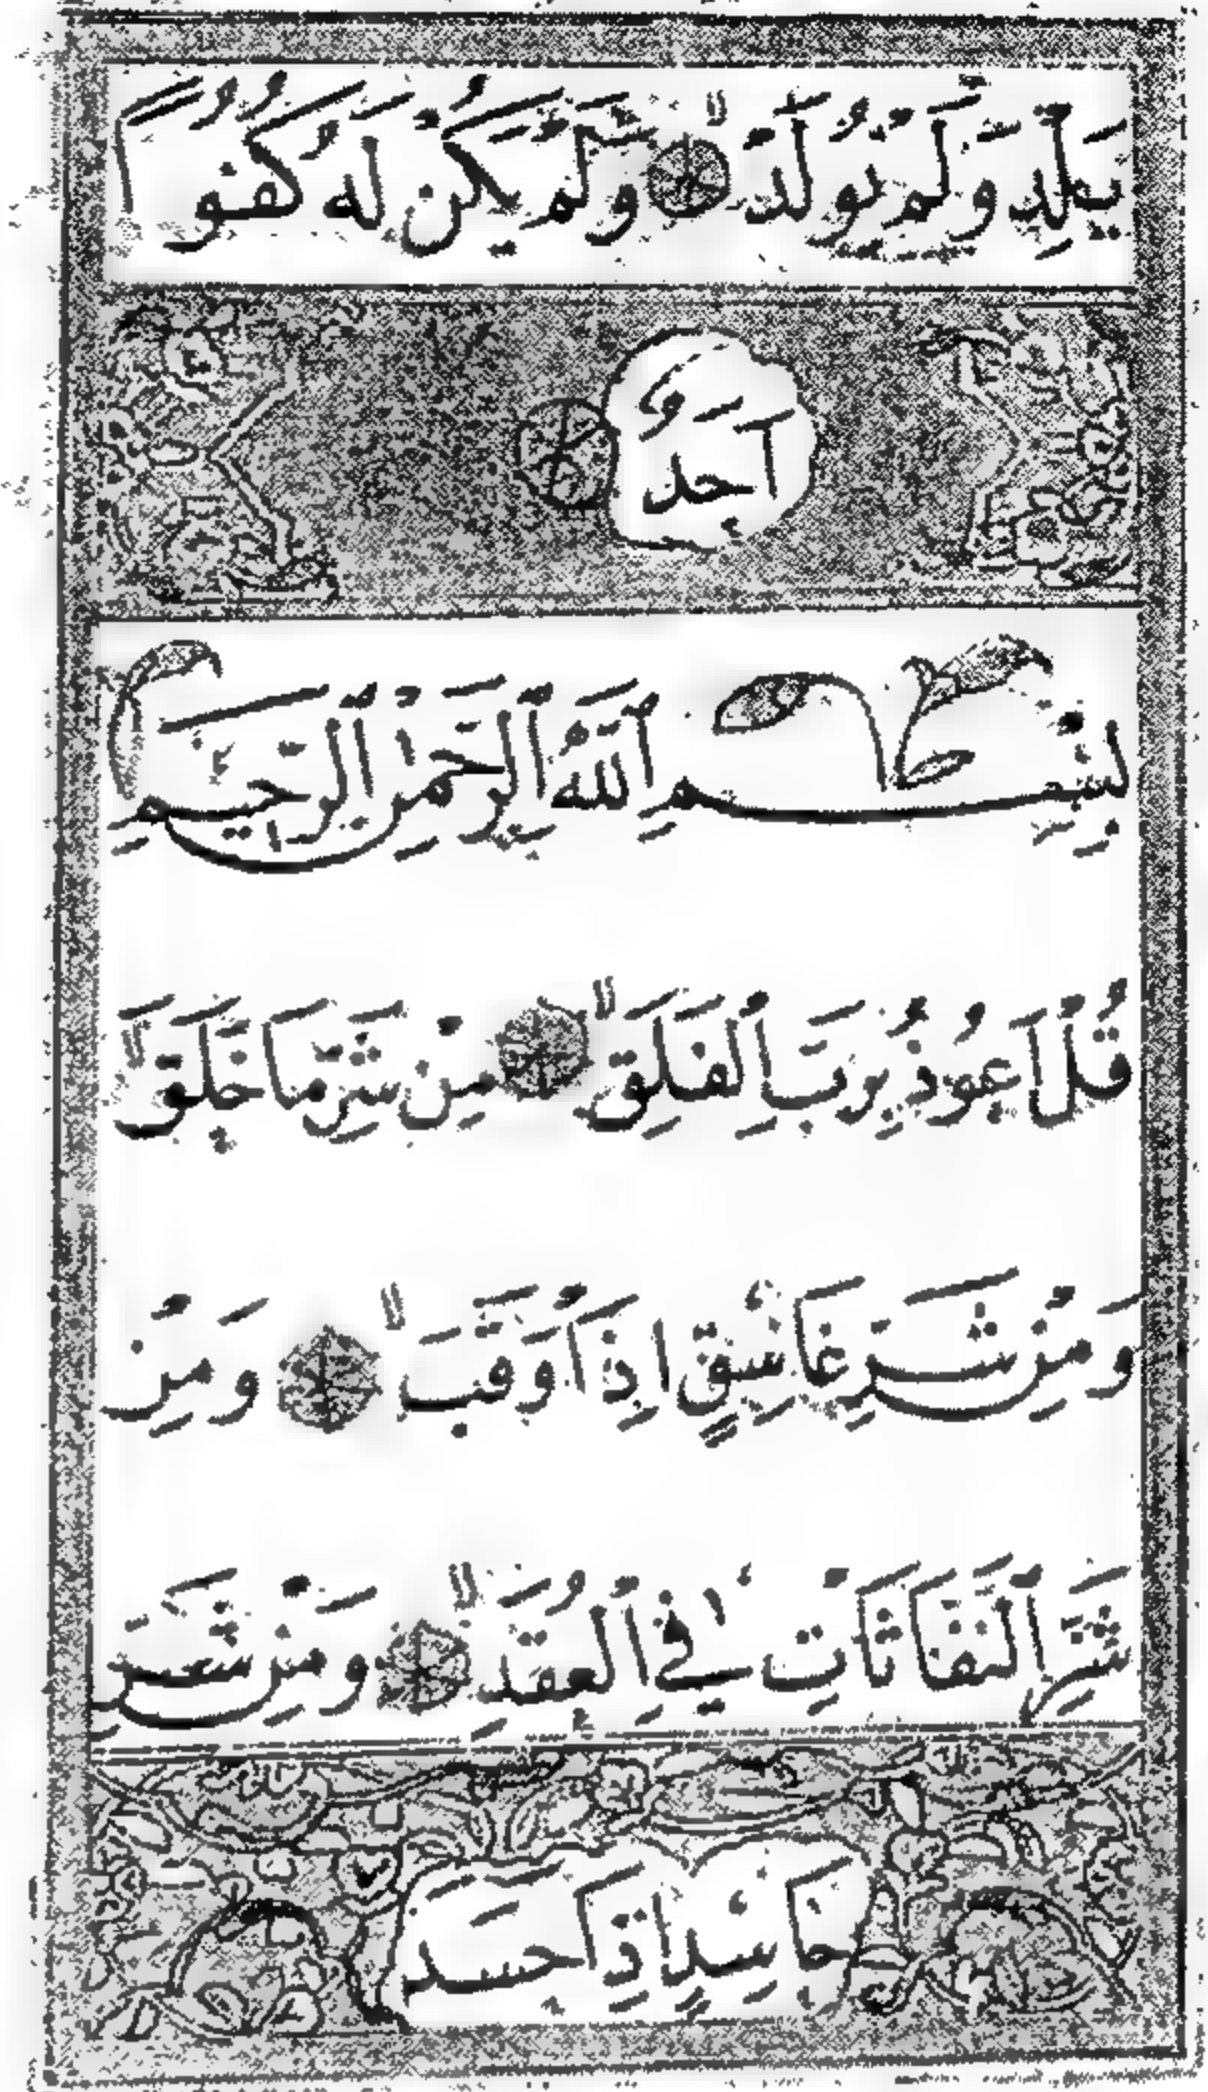 يَلِدْ وَلَمْ يُولَدْ وَلَمْ يَكُنْ لَهُ كُفُوًا
اَحَدٌ
بِسْمِ ٱللّٰهِ ٱلرَّحْمٰنِ ٱلرَّحِيمِ
قُلْ اَعُوذُ بِرَبِّ ٱلْفَلَقِ مِنْ شَرِّ مَا خَلَقَ
وَمِنْ شَرِّ غَاسِقٍ اِذَا وَقَبَ وَمِنْ
شَرِّ ٱلنَّفَّاثَاتِ فِي ٱلْعُقَدِ وَمِنْ شَرِّ
حَاسِدٍ اِذَا حَسَدَ